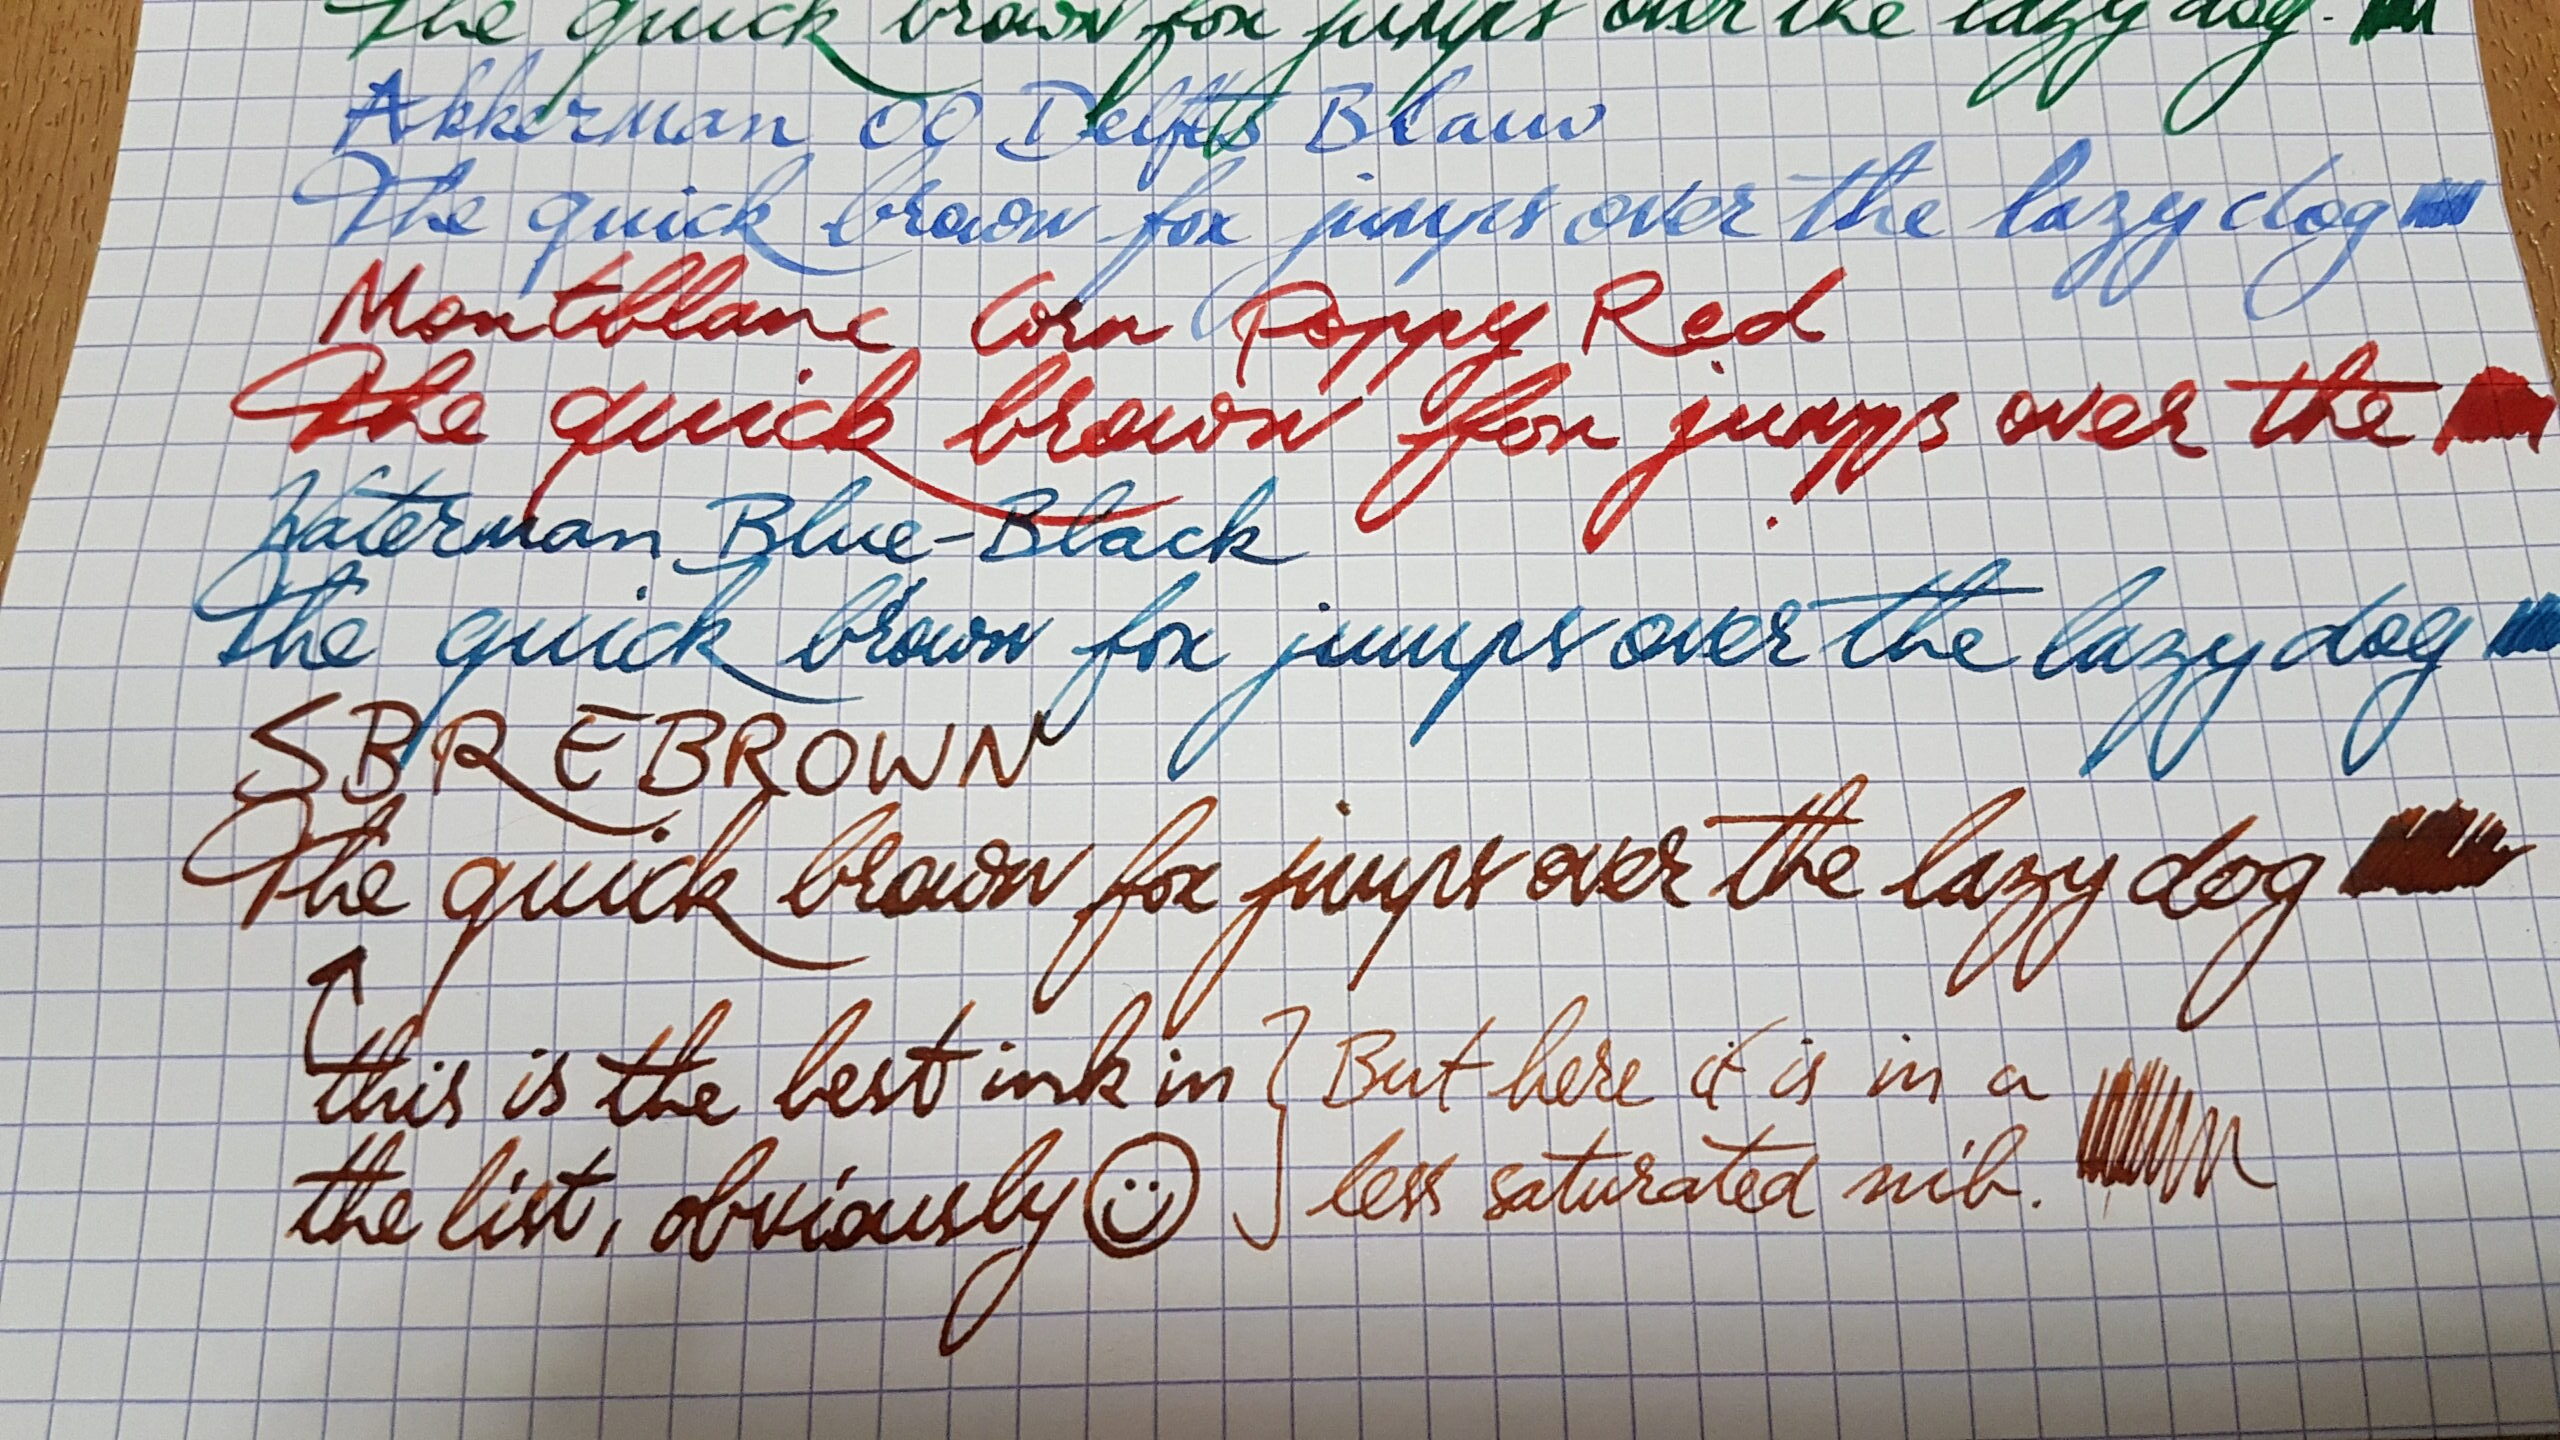 the quick brown fox jumps over the lazy dog.
Akkerman 09 Delfts Blauw
The quick brown fox jumps over the lazy dog
Montblanc Corn Poppy Red
The quick brown fox jumps over the
Waterman Blue-Black
The quick brown fox jumps over the lazy dog
SBREBROWN
The quick brown fox jumps over the lazy dog
this is the best ink in
the list, obviously
But here it is in a
less saturated nib.